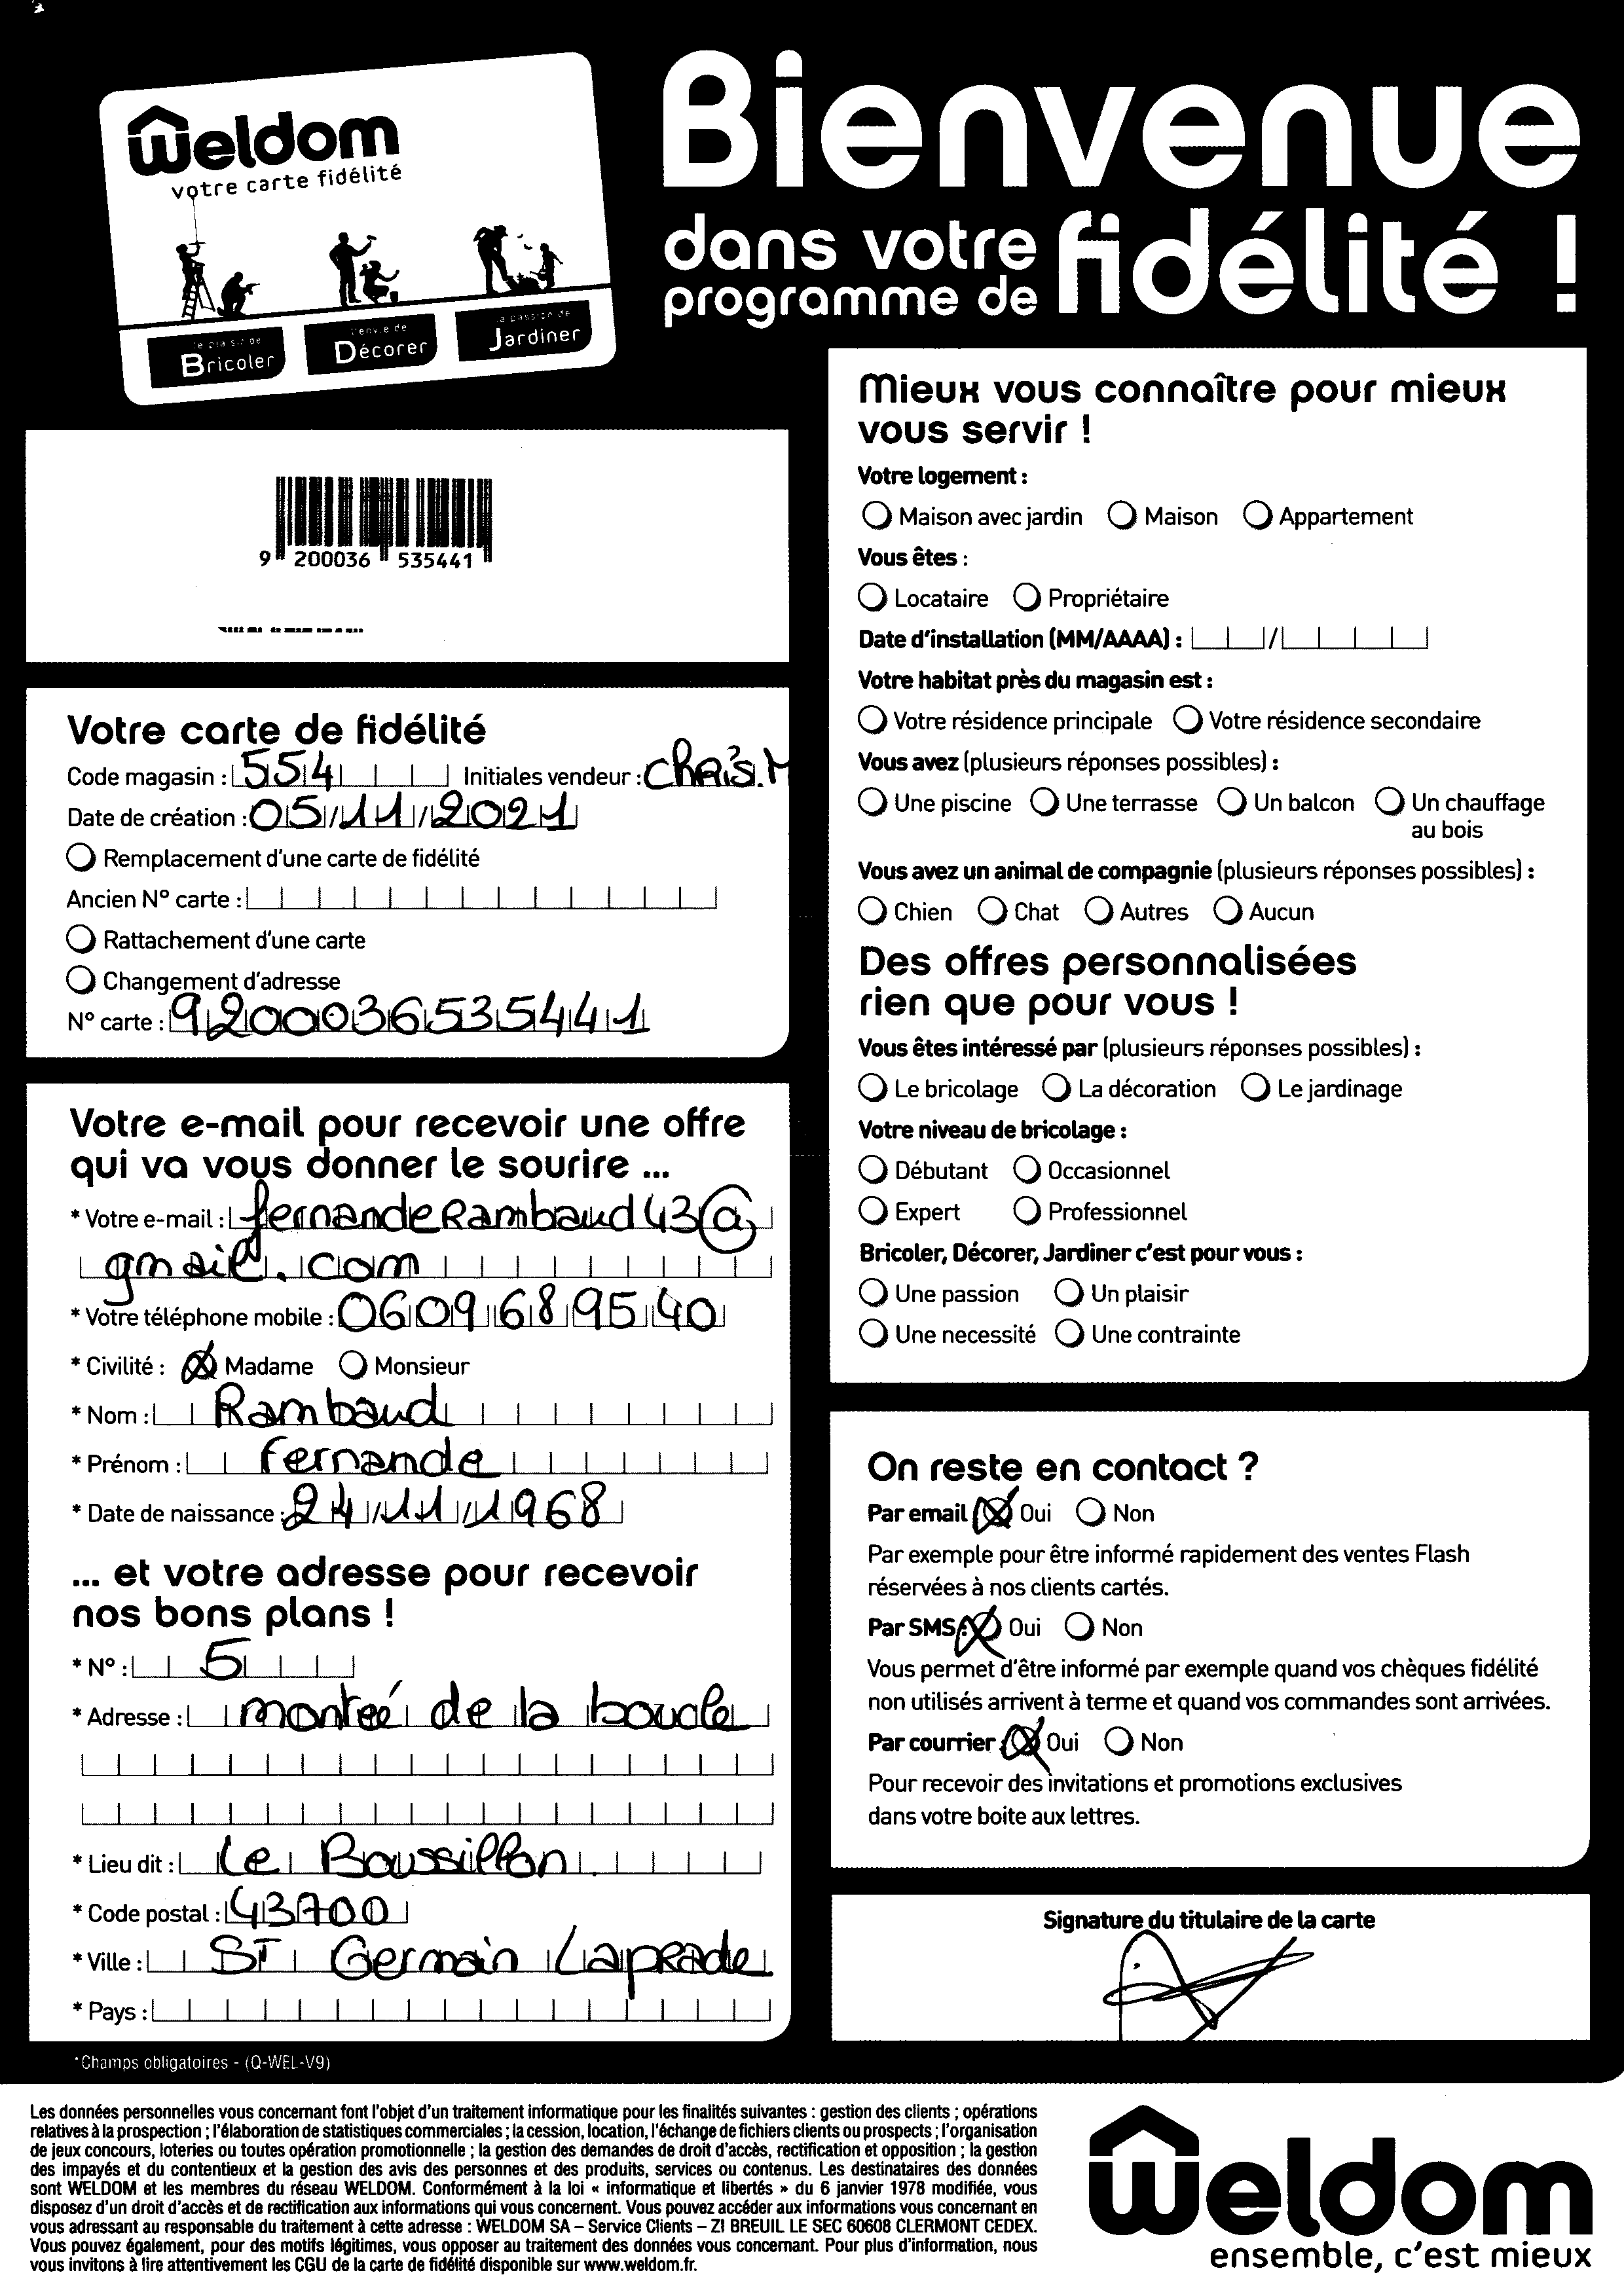 Weldom
votre carte fidélité
Le plaisir de
Bricoler
l'envie de
Décorer
la passion de
Jardiner
Bienvenue
dans votre
programme de fidélité !
9 200036 535441
Votre carte de fidélité
Code magasin : 554 Initiales vendeur : Chris.M
Date de création : 05/11/2021
Remplacement d'une carte de fidélité
Ancien N° carte :
Rattachement d'une carte
Changement d'adresse
N° carte : 9200036535441
Votre e-mail pour recevoir une offre
qui va vous donner le sourire ...
* Votre e-mail : fernandeRambaud43@
gmail.com
* Votre téléphone mobile : 0609689540
* Civilité : Madame Monsieur
* Nom : Rambaud
* Prénom : Fernande
* Date de naissance : 24/11/1968
... et votre adresse pour recevoir
nos bons plans !
* N° : 5
* Adresse : monteé de la boucle
* Lieu dit : Le Boussillon.
* Code postal : 43700
* Ville : ST Germain Laprade
* Pays :
*Champs obligatoires - (Q-WEL-V9)
Mieux vous connaître pour mieux
vous servir !
Votre logement :
Maison avec jardin Maison Appartement
Vous êtes :
Locataire Propriétaire
Date d'installation (MM/AAAA) : /
Votre habitat près du magasin est :
Votre résidence principale Votre résidence secondaire
Vous avez (plusieurs réponses possibles) :
Une piscine Une terrasse Un balcon Un chauffage
au bois
Vous avez un animal de compagnie (plusieurs réponses possibles) :
Chien Chat Autres Aucun
Des offres personnalisées
rien que pour vous !
Vous êtes intéressé par (plusieurs réponses possibles) :
Le bricolage La décoration Le jardinage
Votre niveau de bricolage :
Débutant Occasionnel
Expert Professionnel
Bricoler, Décorer, Jardiner c'est pour vous :
Une passion Un plaisir
Une necessité Une contrainte
On reste en contact ?
Par email Oui Non
Par exemple pour être informé rapidement des ventes Flash
réservées à nos clients cartés.
Par SMS : Oui Non
Vous permet d'être informé par exemple quand vos chèques fidélité
non utilisés arrivent à terme et quand vos commandes sont arrivées.
Par courrier : Oui Non
Pour recevoir des invitations et promotions exclusives
dans votre boite aux lettres.
Signature du titulaire de la carte
Les données personnelles vous concernant font l'objet d'un traitement informatique pour les finalités suivantes : gestion des clients ; opérations
relatives à la prospection ; l'élaboration de statistiques commerciales ; la cession, location, l'échange de fichiers clients ou prospects ; l'organisation
de jeux concours, loteries ou toutes opération promotionnelle ; la gestion des demandes de droit d'accès, rectification et opposition ; la gestion
des impayés et du contentieux et la gestion des avis des personnes et des produits, services ou contenus. Les destinataires des données
sont WELDOM et les membres du réseau WELDOM. Conformément à la loi « informatique et libertés » du 6 janvier 1978 modifiée, vous
disposez d'un droit d'accès et de rectification aux informations qui vous concernent. Vous pouvez accéder aux informations vous concernant en
vous adressant au responsable du traitement à cette adresse : WELDOM SA – Service Clients – ZI BREUIL LE SEC 60608 CLERMONT CEDEX.
Vous pouvez également, pour des motifs légitimes, vous opposer au traitement des données vous concernant. Pour plus d'information, nous
vous invitons à lire attentivement les CGU de la carte de fidélité disponible sur www.weldom.fr.
Weldom
ensemble, c'est mieux